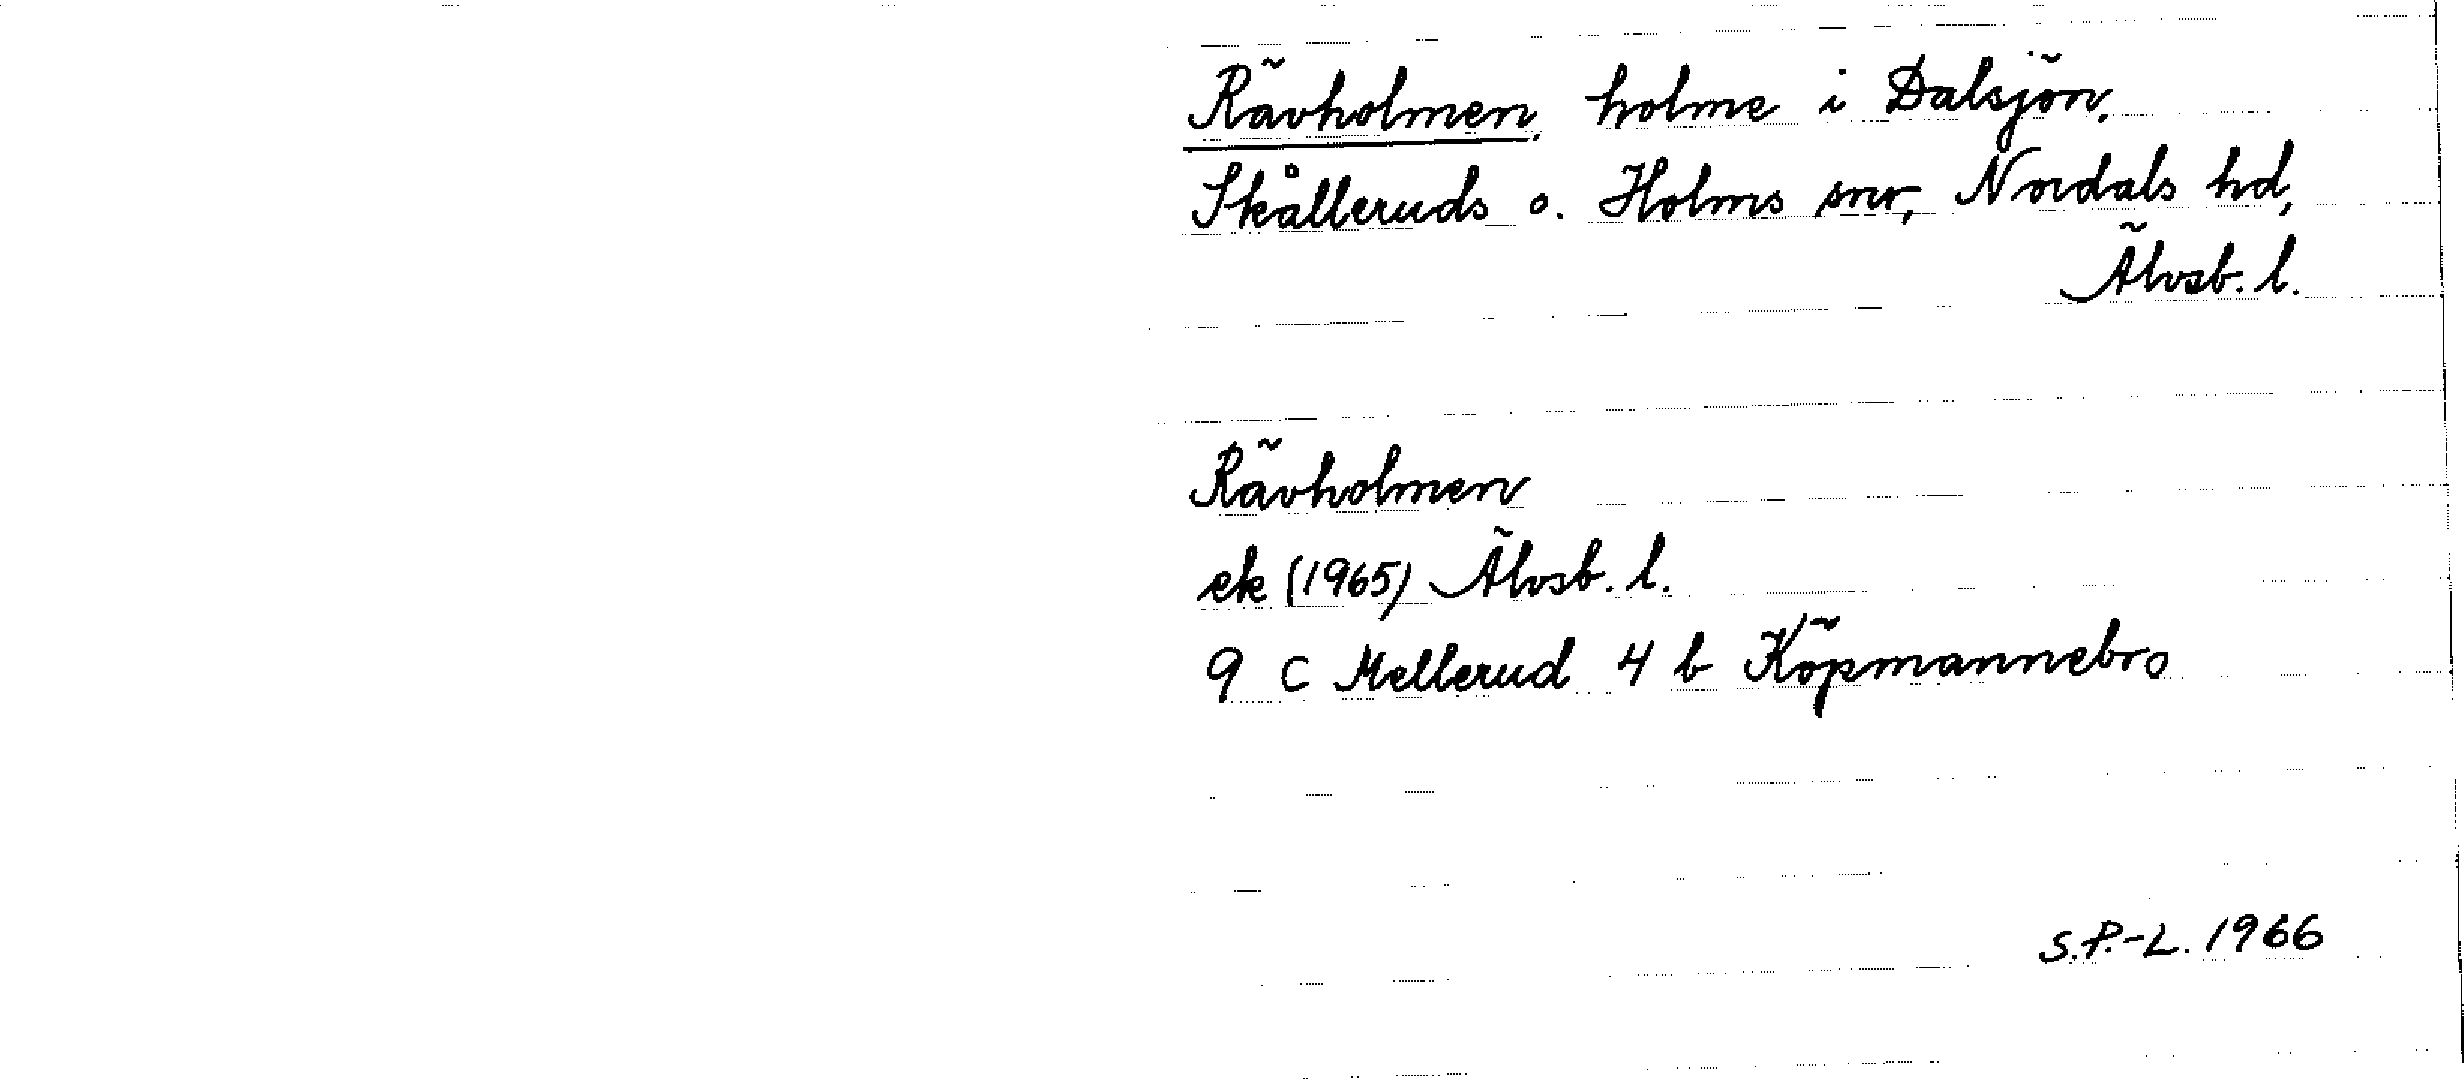 Rävholmen, holme i Dalsjön,
Skålleruds o. Holms snr, Nordals hd,
Älvsb. l.
Rävholmen
ek (1965) Älvsb. l.
9 C Mellerud 4 b Köpmannebro
S.P.-L. 1966